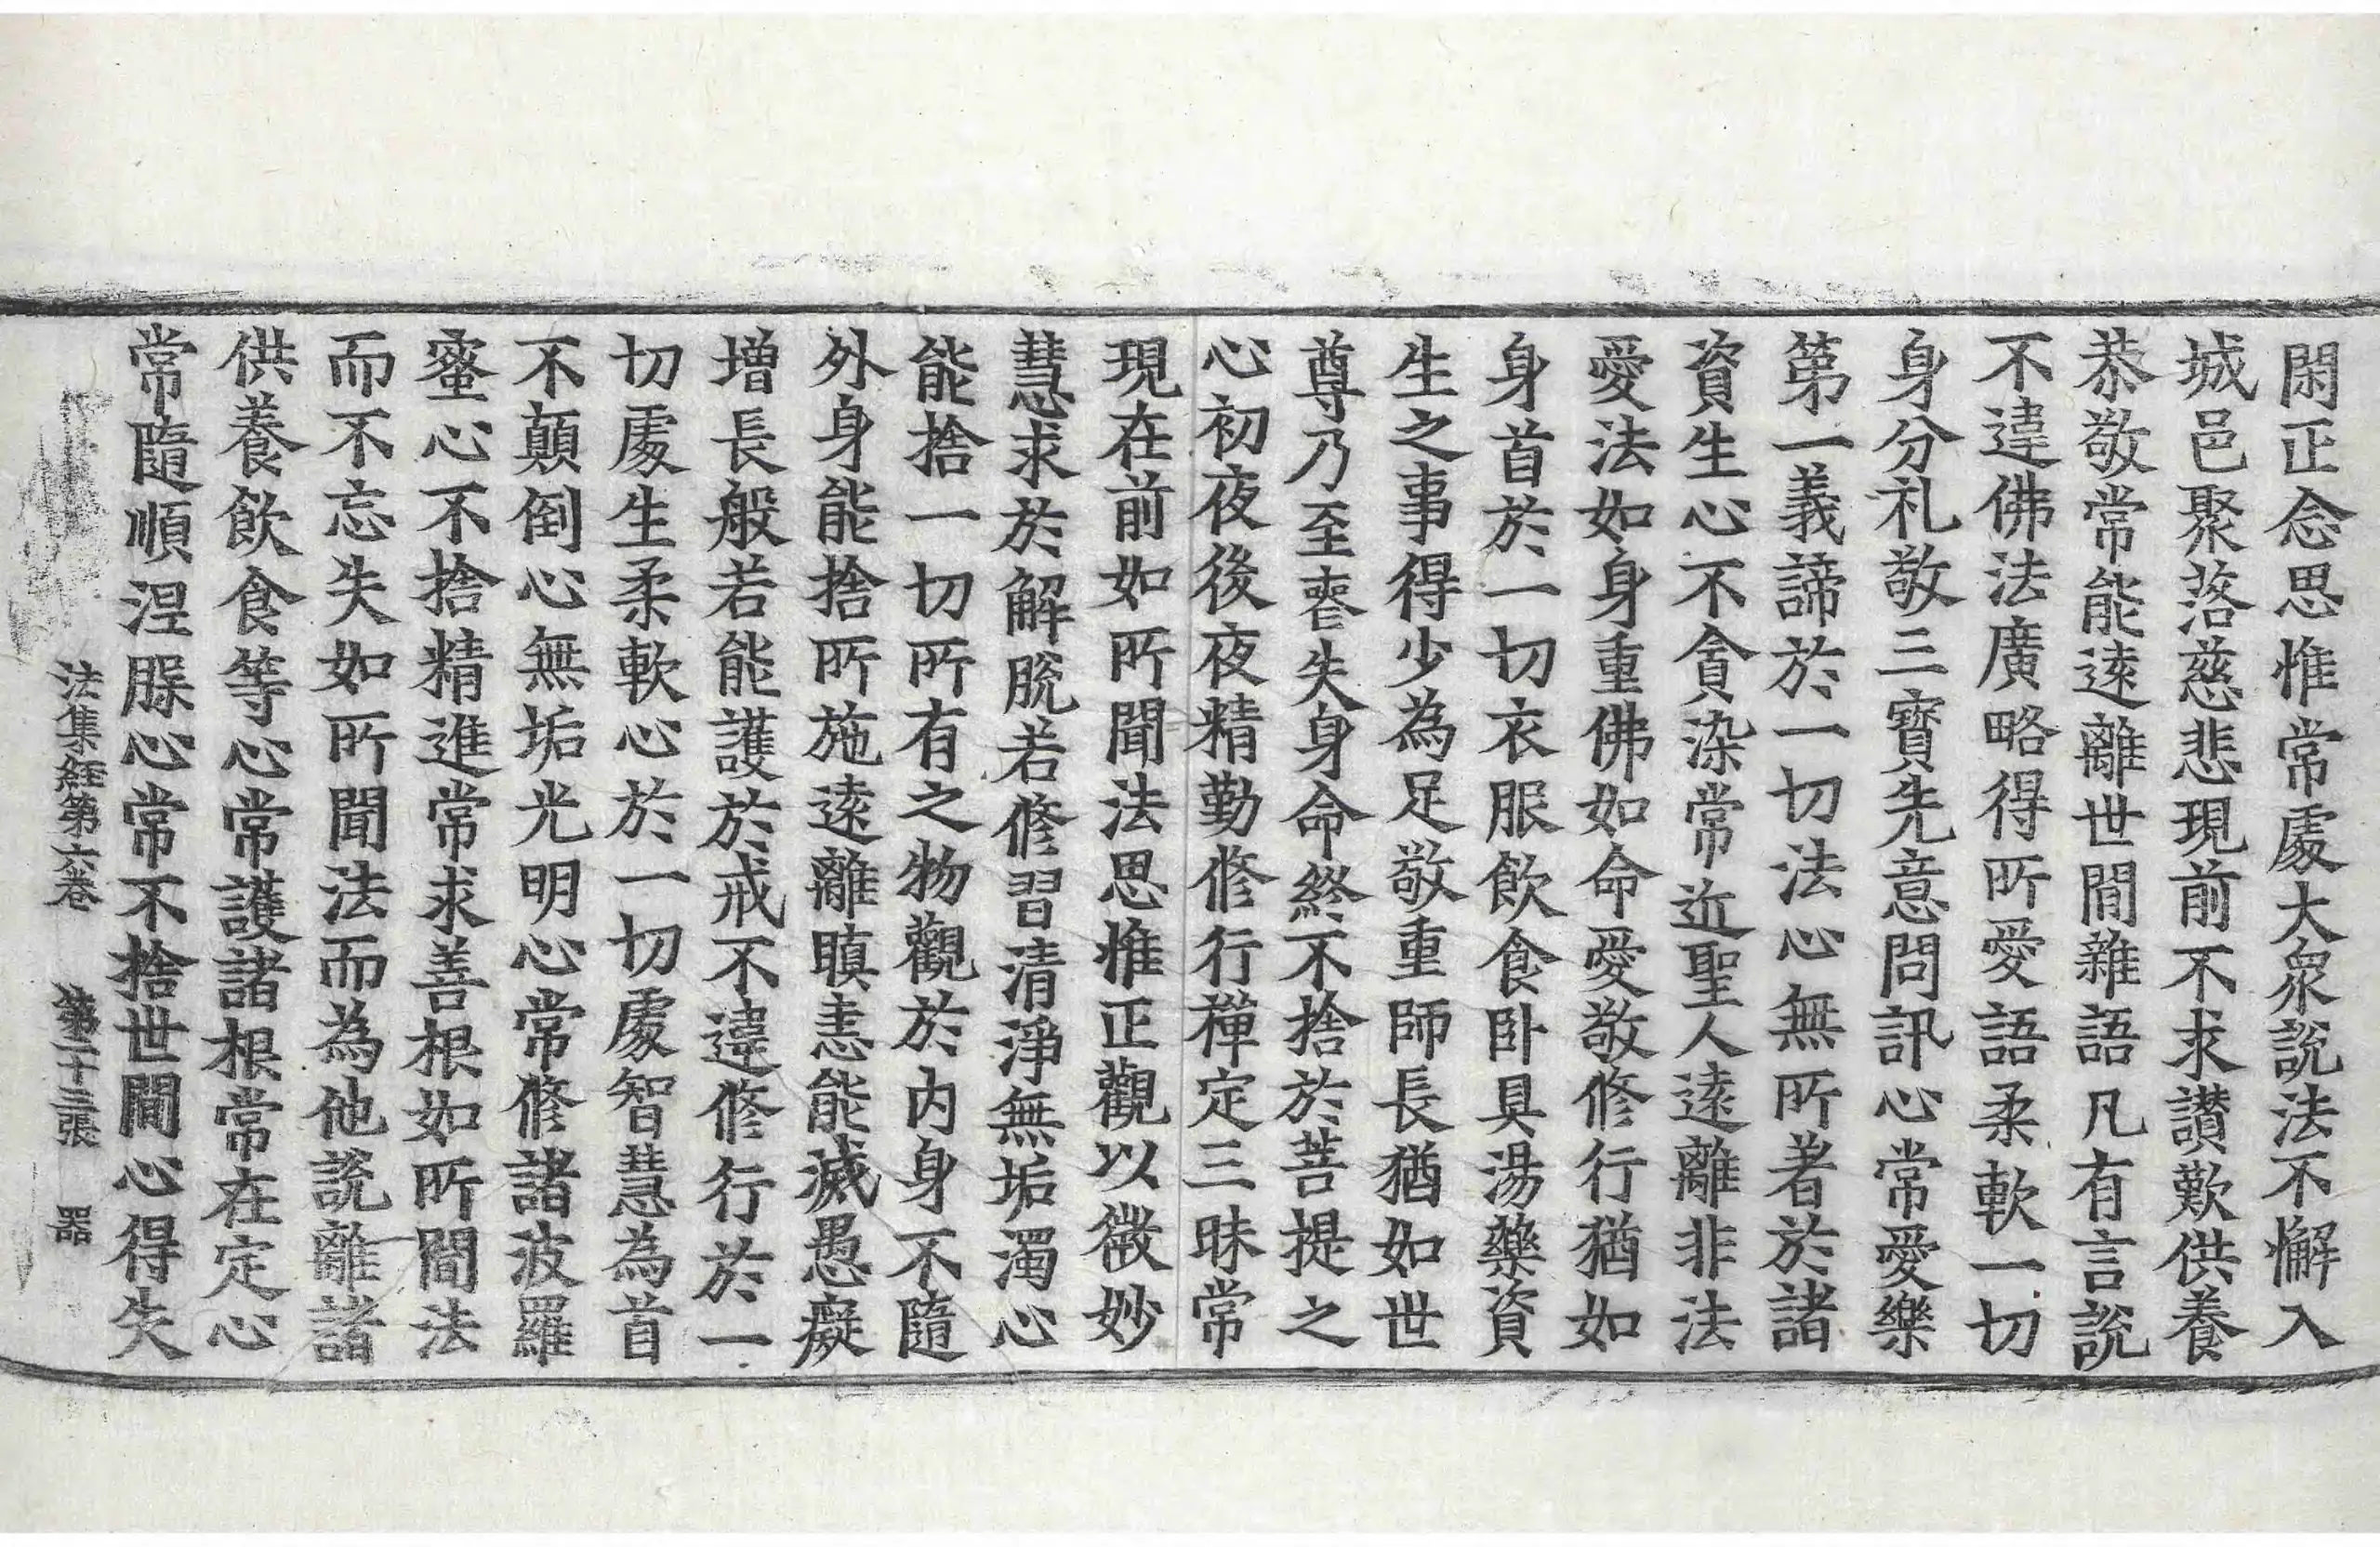 閑正念思惟常處大衆說法不懈入
城邑聚落慈悲現前不求讃歎供養
恭敬常能遠離世間雜語凡有言說
不違佛法廣略得所愛語柔軟一切
身分礼敬三寶先意問訊心常愛樂
第一義諦於一切法心無所著於諸
資生心不貪染常近聖人遠離非法
愛法如身重佛如命愛敬修行猶如
身首於一切衣服飲食卧具湯藥資
生之事得少為足敬重師長猶如世
尊乃至喪失身命終不捨於菩提之
心初夜後夜精勤修行禪定三昧常
現在前如所聞法思惟正觀以微妙
慧求於解脫若修習清淨無垢濁心
能捨一切所有之物觀於內身不隨
外身能捨所施遠離瞋恚能滅愚癡
增長般若能護於戒不違修行於一
切處生柔軟心於一切處智慧為首
不顛倒心無垢光明心常修諸波羅
蜜心不捨精進常求善根如所聞法
而不忘失如所聞法而為他說離諸
供養飲食等心常護諸根常在定心
常隨順涅槃心常不捨世間心得失
法集經第六卷 第二十三張 器